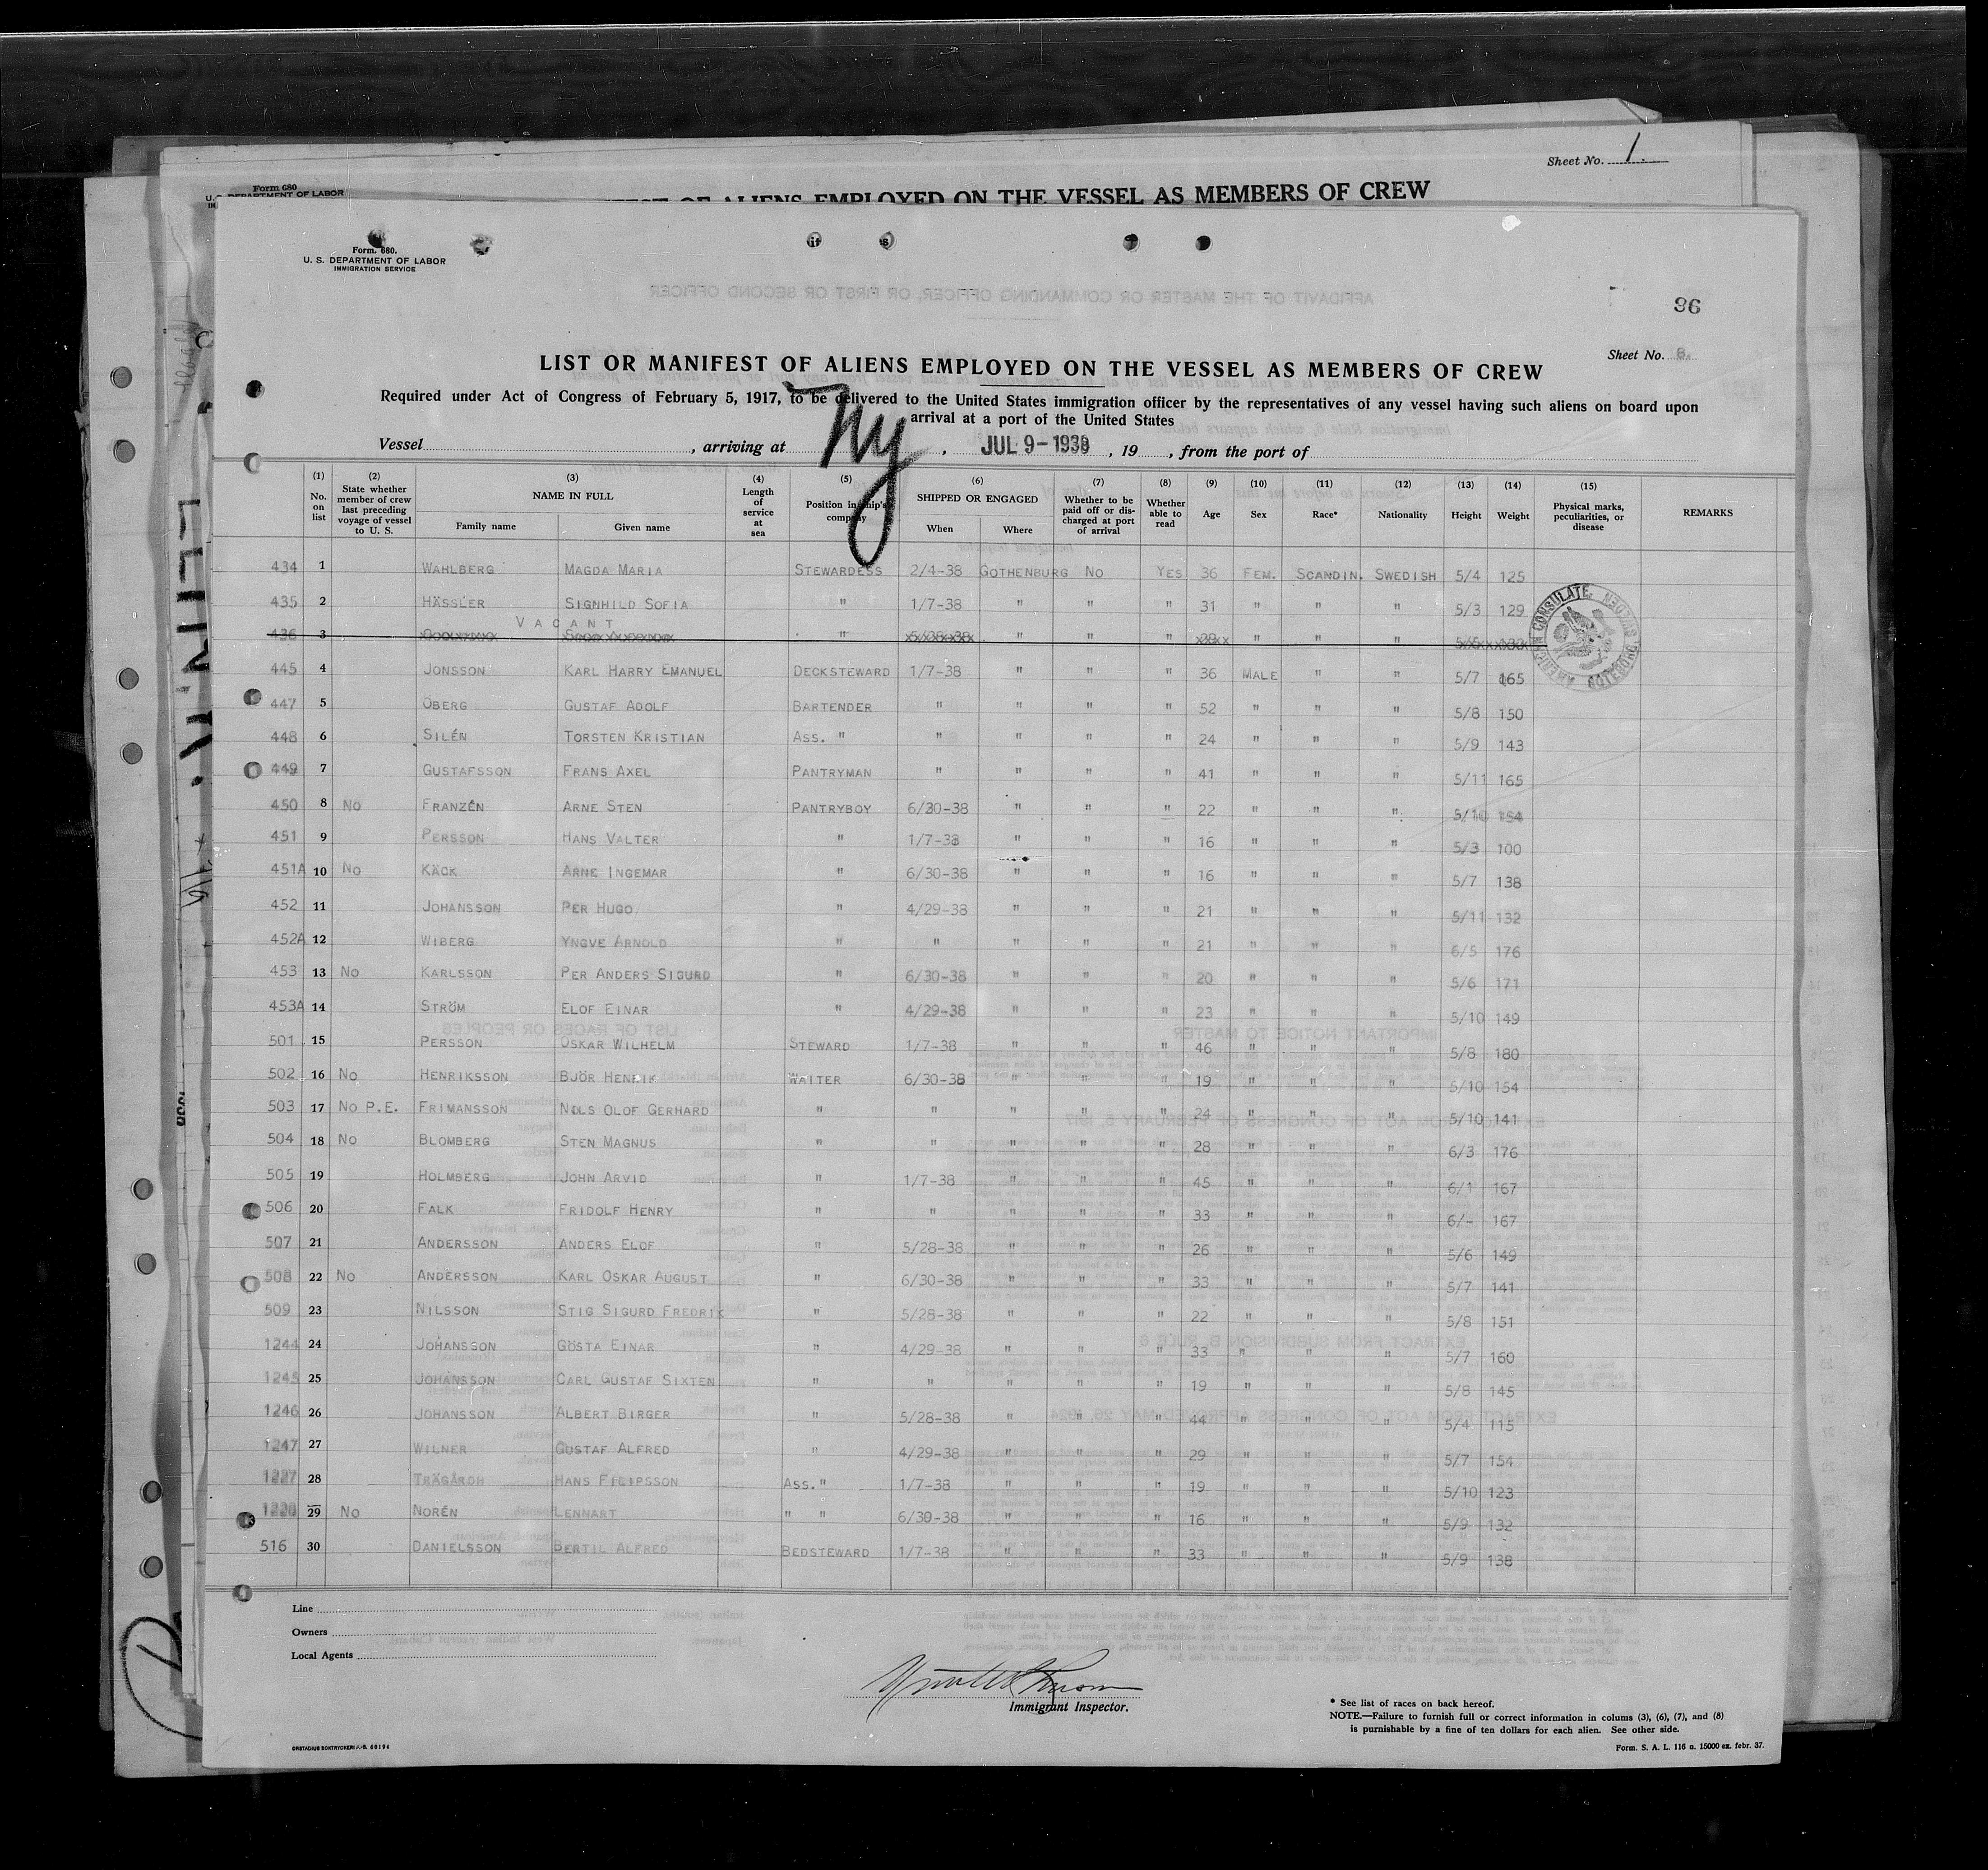 Sheet No. 1.
Form 680
U. S. DEPARTMENT OF LABOR
OF ALIENS EMPLOYED ON THE VESSEL AS MEMBERS OF CREW
Form. 680.
U. S. DEPARTMENT OF LABOR
IMMIGRATION SERVICE
AFFIDAVIT OF THE MASTER OR COMMANDING OFFICER, OR FIRST OR SECOND OFFICER
86
Sheet No. 8.
LIST OR MANIFEST OF ALIENS EMPLOYED ON THE VESSEL AS MEMBERS OF CREW
Required under Act of Congress of February 5, 1917, to be delivered to the United States immigration officer by the representatives of any vessel having such aliens on board upon
arrival at a port of the United States
Vessel , arriving at Ny , JUL 9-1938 , 19 , from the port of
(1) No. on list (2) State whether member of crew last preceding voyage of vessel to U. S. (3) NAME IN FULL Family name Given name (4) Length of service at sea (5) Position in ship's company (6) SHIPPED OR ENGAGED When Where (7) Whether to be paid off or discharged at port of arrival (8) Whether able to read (9) Age (10) Sex (11) Race* (12) Nationality (13) Height (14) Weight (15) Physical marks, peculiarities, or disease REMARKS
434 1 WAHLBERG MAGDA MARIA STEWARDESS 2/4-38 GOTHENBURG NO YES 36 FEM. SCANDIN. SWEDISH 5/4 125
435 2 HÄSSLER SIGNHILD SOFIA " 1/7-38 " " " 31 " " " 5/3 129
436 3 VACANT " " " " " " "
445 4 JONSSON KARL HARRY EMANUEL DECKSTEWARD 1/7-38 " " " 36 MALE " " 5/7 165
447 5 ÖBERG GUSTAF ADOLF BARTENDER " " " " 52 " " " 5/8 150
448 6 SILÉN TORSTEN KRISTIAN ASS. " " " " " 24 " " " 5/9 143
449 7 GUSTAFSSON FRANS AXEL PANTRYMAN " " " " 41 " " " 5/11 165
450 8 NO FRANZÉN ARNE STEN PANTRYBOY 6/30-38 " " " 22 " " " 5/10 154
451 9 PERSSON HANS VALTER " 1/7-38 " " " 16 " " " 5/3 100
451A 10 NO KÄCK ARNE INGEMAR " 6/30-38 " " " 16 " " " 5/7 138
452 11 JOHANSSON PER HUGO " 4/29-38 " " " 21 " " " 5/11 132
452A 12 WIBERG YNGVE ARNOLD " " " " " 21 " " " 6/5 176
453 13 NO KARLSSON PER ANDERS SIGURD " 6/30-38 " " " 20 " " " 5/6 171
453A 14 STRÖM ELOF EINAR " 4/29-38 " " " 23 " " " 5/10 149
501 15 PERSSON OSKAR WILHELM STEWARD 1/7-38 " " " 46 " " " 5/8 180
502 16 NO HENRIKSSON BJÖR HENRIK WAITER 6/30-38 " " " 19 " " " 5/10 154
503 17 NO P.E. FRIMANSSON NOLS OLOF GERHARD " " " " " 24 " " " 5/10 141
504 18 NO BLOMBERG STEN MAGNUS " " " " " 28 " " " 6/3 176
505 19 HOLMBERG JOHN ARVID " 1/7-38 " " " 45 " " " 6/1 167
506 20 FALK FRIDOLF HENRY " " " " " 33 " " " 6/- 167
507 21 ANDERSSON ANDERS ELOF " 5/28-38 " " " 26 " " " 5/6 149
508 22 NO ANDERSSON KARL OSKAR AUGUST " 6/30-38 " " " 33 " " " 5/7 141
509 23 NILSSON STIG SIGURD FREDRIK " 5/28-38 " " " 22 " " " 5/8 151
1244 24 JOHANSSON GÖSTA EINAR " 4/29-38 " " " 33 " " " 5/7 160
1245 25 JOHANSSON CARL GUSTAF SIXTEN " " " " " 19 " " " 5/8 145
1246 26 JOHANSSON ALBERT BIRGER " 5/28-38 " " " 44 " " " 5/4 115
1247 27 WILNER GUSTAF ALFRED " 4/29-38 " " " 29 " " " 5/7 154
1227 28 TRÄGÅRDH HANS FILIPSSON ASS. " 1/7-38 " " " 19 " " " 5/10 123
1228 29 NO NORÉN LENNART " " 6/30-38 " " " 16 " " " 5/9 132
516 30 DANIELSSON BERTIL ALFRED BEDSTEWARD 1/7-38 " " " 33 " " " 5/9 138
AMERICAN CONSULATE GOTEBORG SWEDEN
Line
Owners
Local Agents
Immigrant Inspector.
* See list of races on back hereof.
NOTE.—Failure to furnish full or correct information in colums (3), (6), (7), and (8)
is punishable by a fine of ten dollars for each alien. See other side.
Form. S. A. L. 116 a. 15000 ex. febr. 37.